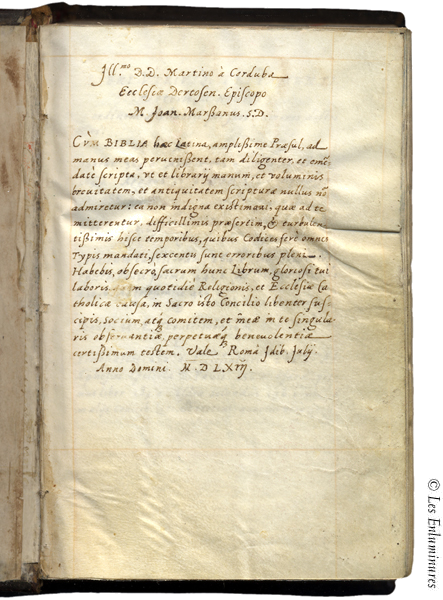 Ill.mo D.D. Martino à Corduba
Ecclesiæ Dertosen. Episcopo
M. Joan. Marßanus. S.D.
CVM BIBLIA hæc Latina, amplißime Præsul, ad
manus meas peruenißent, tam diligenter, et emē
datè scripta, vt et librarij manum, et voluminis
breuitatem, et antiquitatem scripturæ nullus nō
admiretur: ea non indigna existimaui, quæ ad te
mitterentur, difficillimis præsertim, & turbulen
tißimis hisce temporibus, quibus Codices ferè omnes
Typis mandati, sexcentis sunt erroribus pleni.
Habebis, obsecro, sacrum hunc Librum, gloriosi tui
laboris, quem quotidie Religionis, et Ecclesiæ Ca
tholicæ causa, in Sacro isto Concilio libenter sus
cipis, socium, atq comitem, et meæ in te singula
ris obseruantiæ, perpetuæq beneuolentiæ
certißimum testem. Vale Romæ Idib. Julij.
Anno Domini M. D LXIIJ.
© Les Enluminures